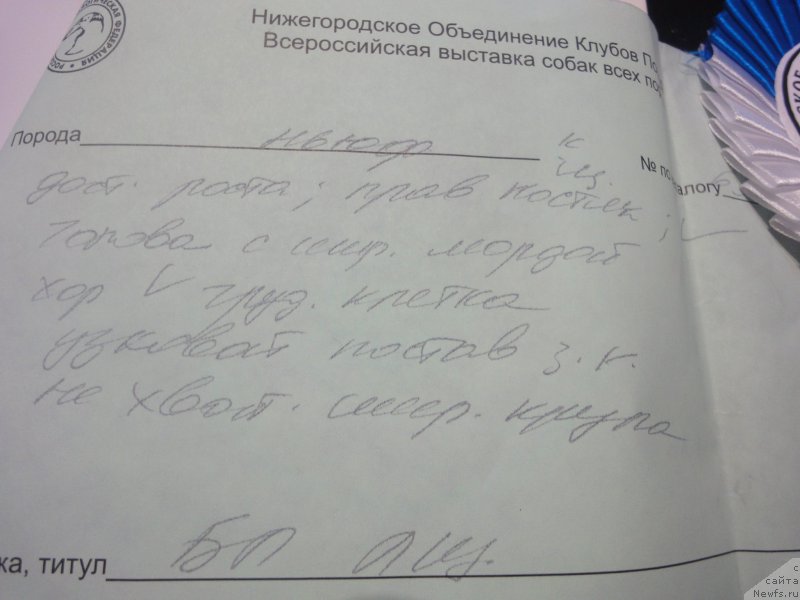 Нижегородское Объединение Клубов По
Всероссийская выставка собак всех пор
Порода ньюф к
№ по
щ.
алогу
дост. роста; прав костяк;
Голова с шир. мордой
хор V груд. клетка
узковат постав з. к.
не хват. шир. крупа
ка, титул БП лщ.
с
сайта
Newfs.ru